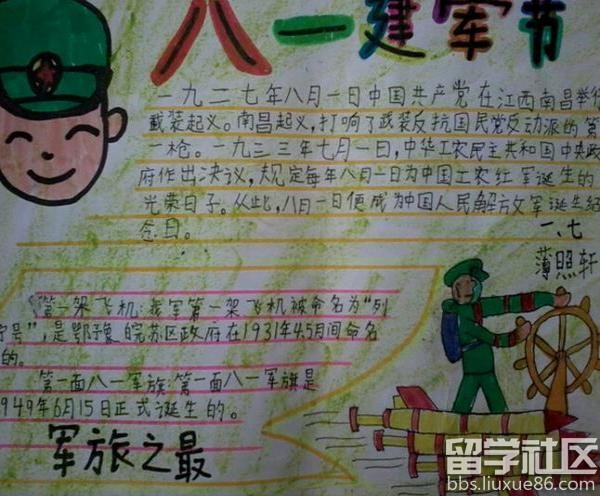 八一建军节
一九二七年八月一日中国共产党在江西南昌举行
载装起义。南昌起义,打响了武装反抗国民党反动派的第
一枪。一九三三年七月一日,中华工农民主共和国中央政
府作出决议,规定每年八月一日为中国工农红军诞生的
光荣日子。从此,八月一日便成为中国人民解放军诞生纪
念日。
一、七
薄照轩
第一架飞机:我军第一架飞机被命名为“列
号”,是鄂豫皖苏区政府在1931年4、5月间命名
的。
第一面八一军旗:第一面八一军旗是
1949年6月15日正式诞生的。
军旅之最
留学社区
bbs.liuxue86.com